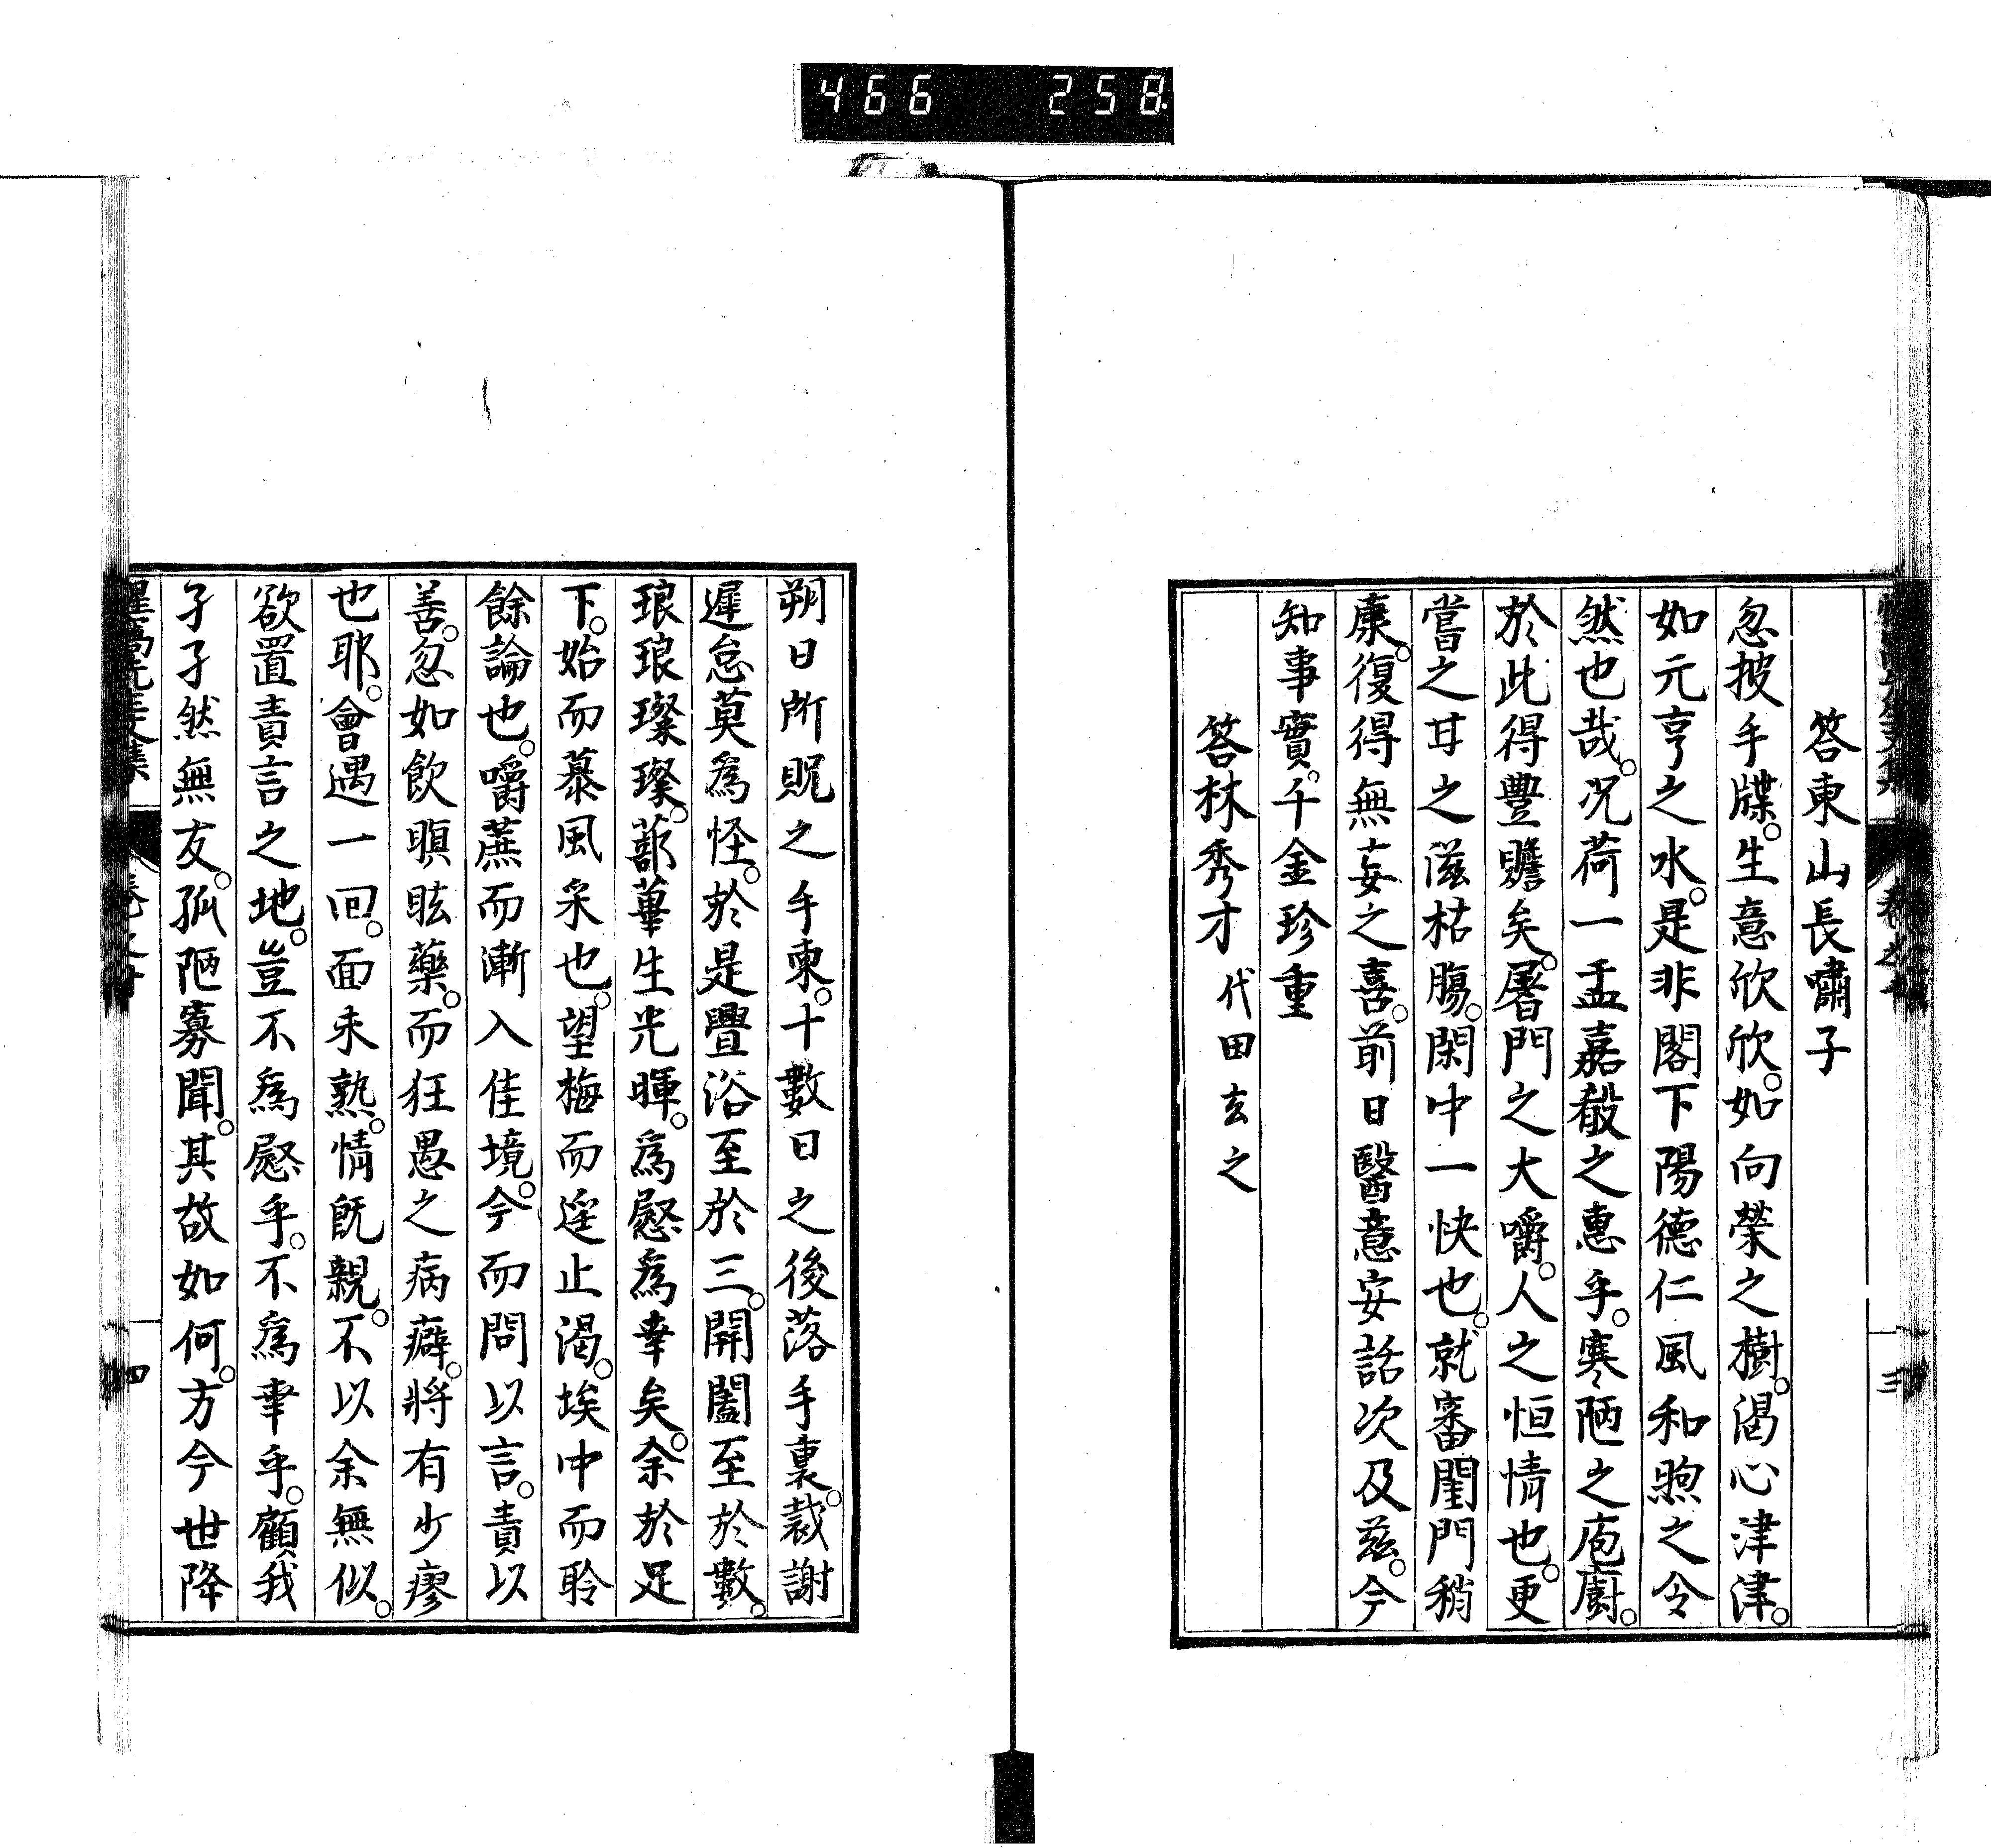 466 258
答東山長嘯子
忽披手牒。生意欣欣。如向榮之樹。渴心津津。
如元亨之水。是非閣下陽德仁風和煦之令
然也哉。况荷一盂嘉殽之惠乎。寒陋之庖廚。
於此得豐贍矣。屠門之大嚼。人之恒情也。更
嘗之甘之滋枯腸。閑中一快也。就審閨門稍
康。復得無妄之喜。前日醫意安話次及茲。今
知事實。千金珍重
答林秀才 代田玄之
三
朔日所貺之手柬。十數日之後落手裏。裁謝
遲怠莫爲怪。於是疊浴至於三。開闔至於數。
琅琅璨璨。蔀蓽生光暉。爲慰爲幸矣。余於足
下。始而慕風采也。望梅而逆止渴。埃中而聆
餘論也。嚼蔗而漸入佳境。今而問以言。責以
善。忽如飲瞑眩藥。而狂愚之病癖。將有少瘳
也耶。會遇一回。面未熟。情既親。不以余無似。
欲置責言之地。豈不爲慰乎。不爲幸乎。顧我
孑孑然無友。孤陋寡聞。其故如何。方今世降
四